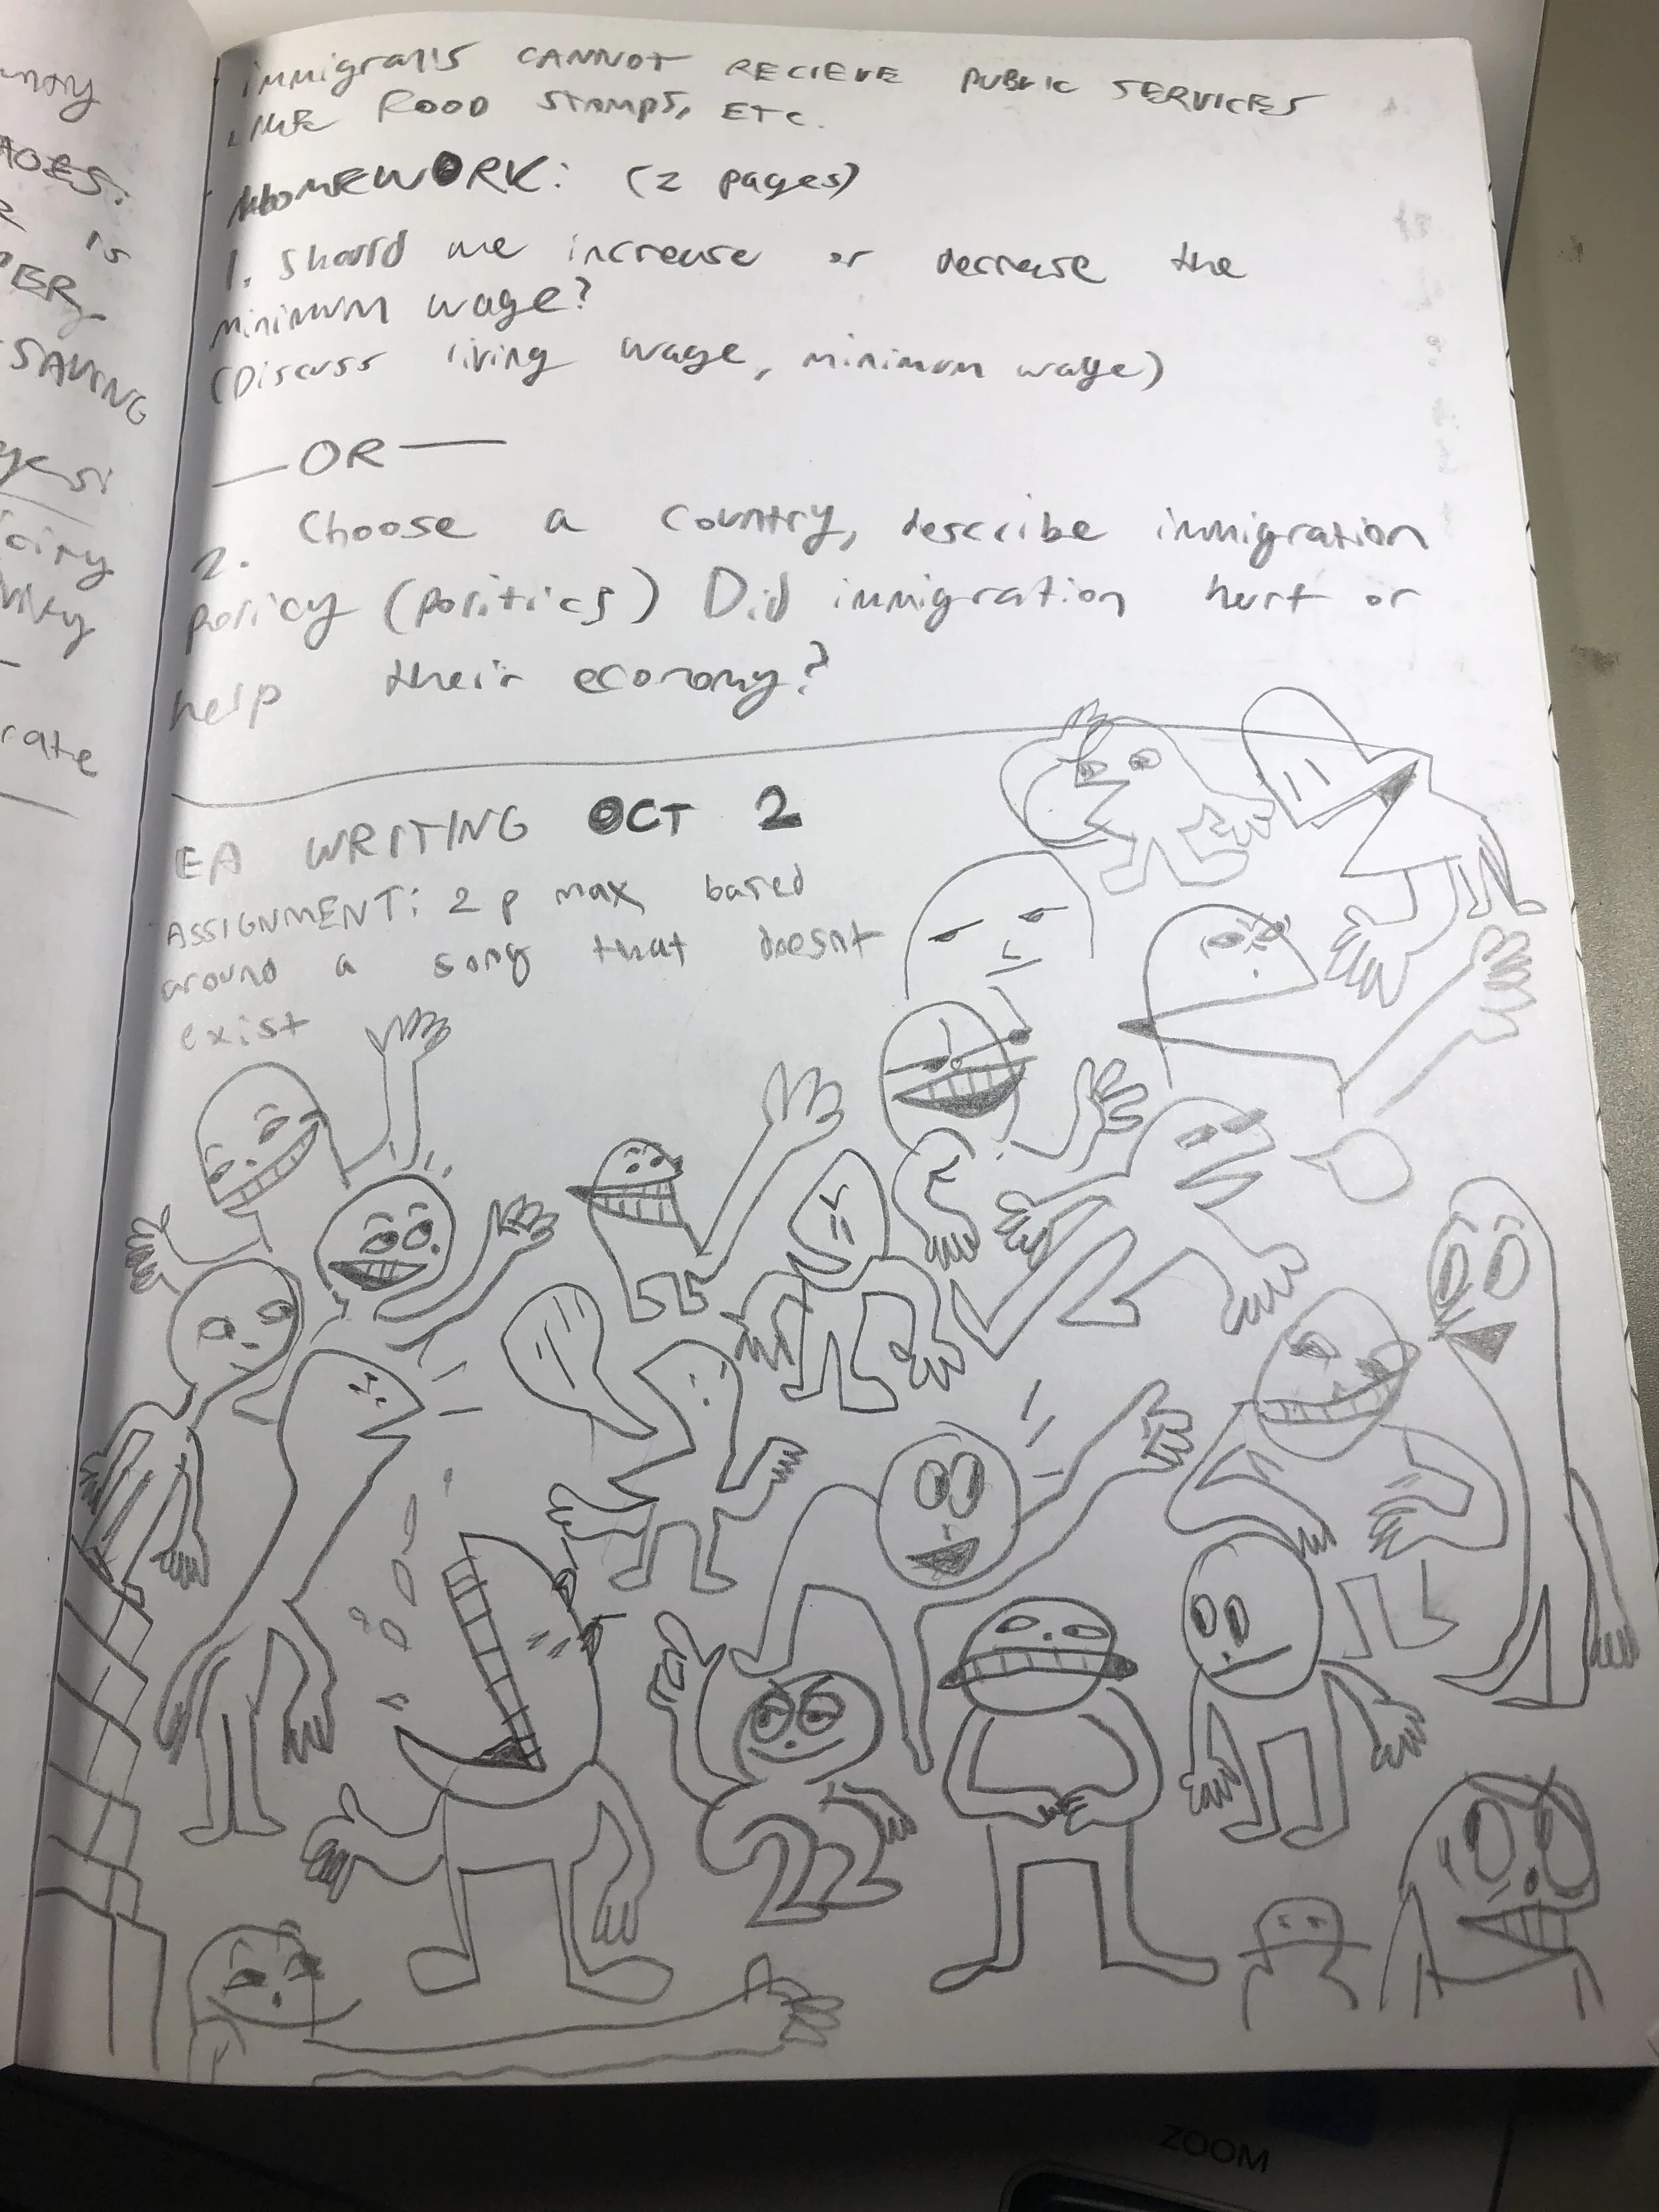 immigrants CANNOT RECIEVE PUBLIC SERVICES
LIKE FOOD STAMPS, ETC.
HOMEWORK: (2 pages)
1. Should we increase or decrease the
minimum wage?
(Discuss living wage, minimum wage)
OR
2. Choose a country, describe immigration
policy (politics) Did immigration hurt or
help their economy?
EA WRITING OCT 2
ASSIGNMENT: 2 p max based
around a song that doesnt
exist
is
SAVING
rate
22
ZOOM